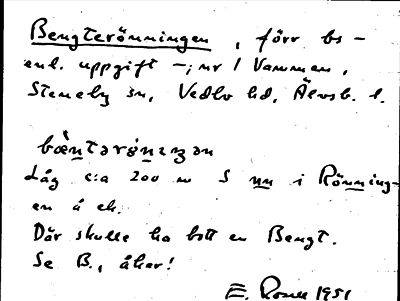 Bengterönningen, förr bs -
enl. uppgift -; nr 1 Vamman,
Steneby sn, Vedbo hd, Älvsb. l.
bæ̀ntərø̀nɪŋən
Låg c:a 200 m S nn i Rönning-
en å ek.
Där skulle ha bott en Bengt.
Se B., åker!
E. Rosell 1951